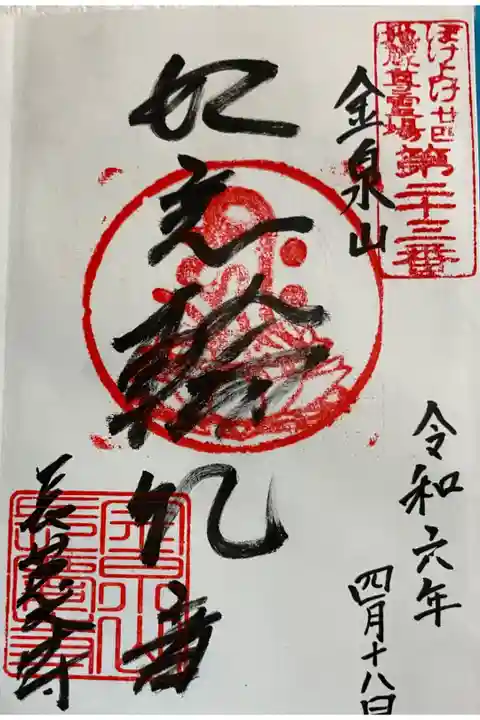 ぼけよけ廿四
地蔵尊霊場
第二十三番
金泉山
令和六年
四月十八日
如意輪観音
長慶寺